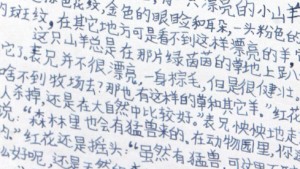 漂亮的小山羊
内斑纹,金色的眼睛和耳朵,一头粉色的
在其它地方可是看不到这样漂亮的羊,
这只山羊总是在那片绿茵茵的草地上
它了。表兄并不很漂亮,一身棕毛,但是很健壮
啥不到牧场去?那也有这样的草和其它羊。"红花
人杀掉,还是大自然中比较好。"表兄怏怏地走
说:"森林里也会有猛兽来的。在动物园里,你
"红花还是摇头:"虽然有猛兽,可这里不
么好呢,还是天然的